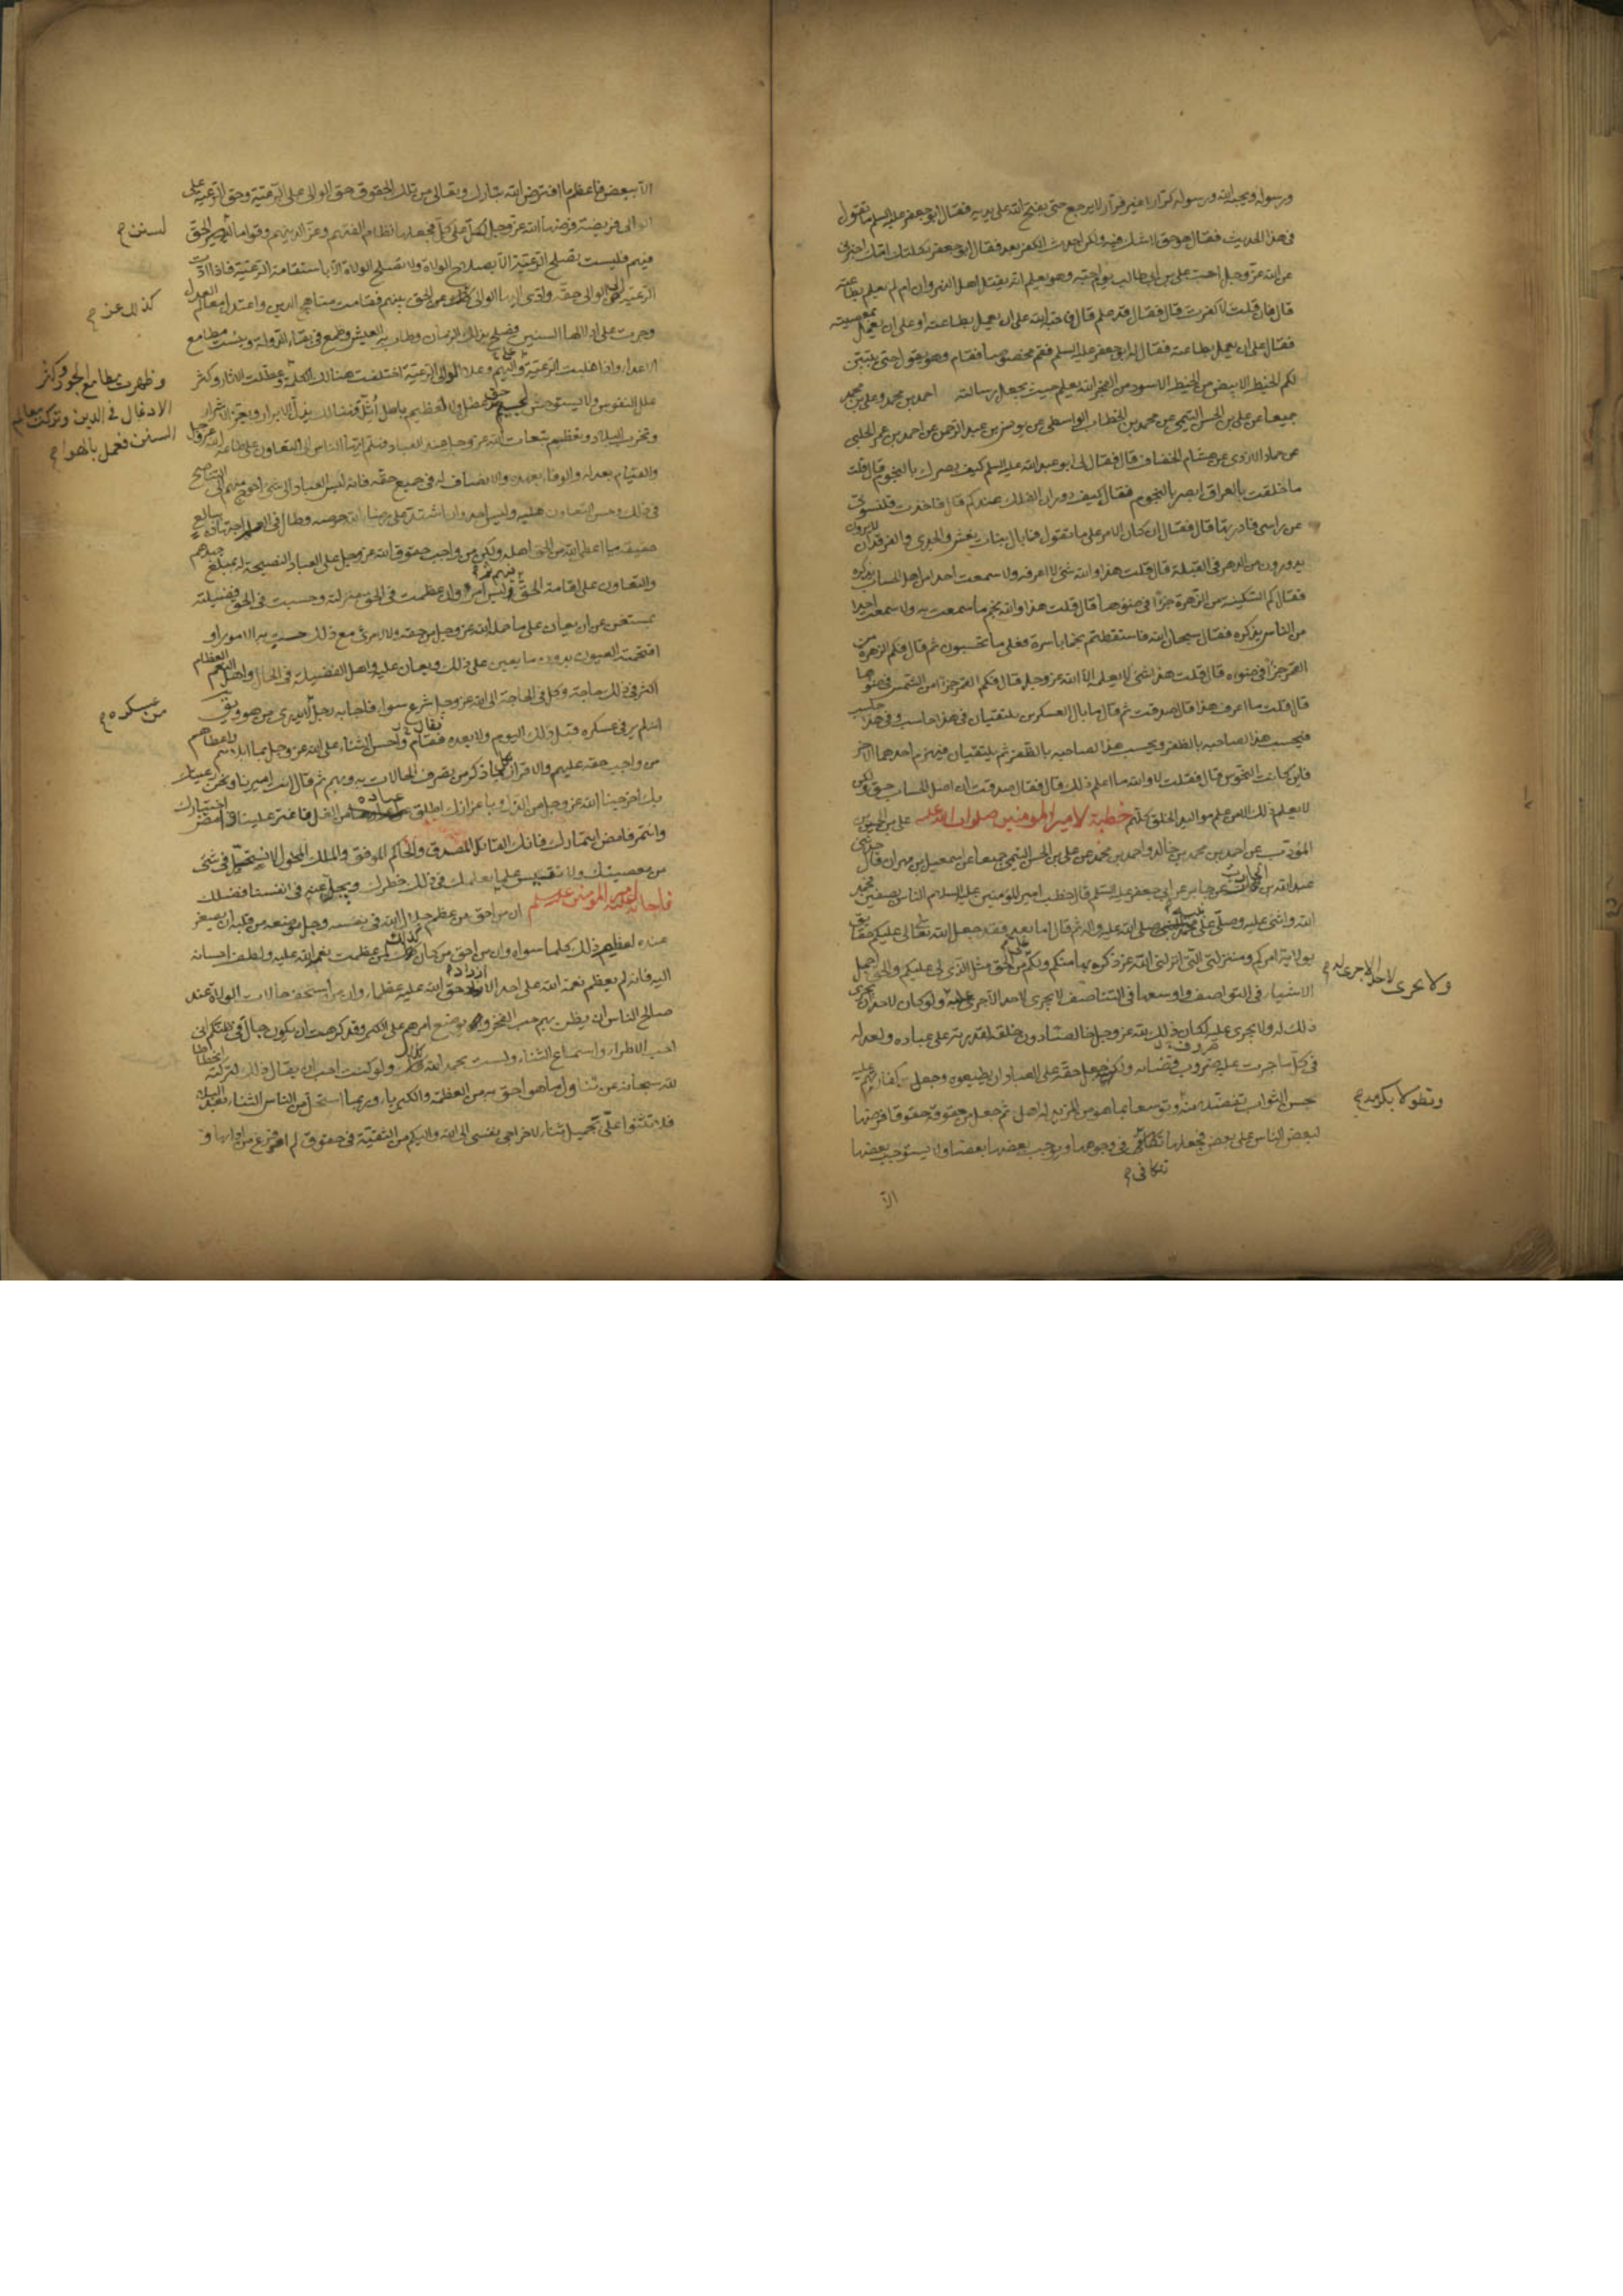 ورسوله ويحبه الله ورسوله كرارا غير فرار لا يرجع حتى يفتح الله على يديه فقال ابو جعفر عليه السلم ما تقول
فى هذا الحديث فقال هو حق لا شك فيه ولكن احدث الكفر بعد فقال ابو جعفر ثكلتك امك اخبرنى
عن الله عز وجل احب على بن ابى طالب يوم احبه وهو يعلم انه يقتل اهل النهروان ام لم يعلم
قال فان قلت لا كفرت قال فقال قد علم قال فاحبه الله على ان يعمل بطاعته او على ان يعمل بمعصيته
فقال على ان يعمل بطاعته فقال له ابو جعفر عليه السلم فقم مخصوما فقام وهو يقول حتى يتبين
لكم الخيط الابيض من الخيط الاسود من الفجر الله يعلم حيث يجعل رسالته احمد بن محمد وعلى بن محمد
جميعا عن على بن الحسن التيمى عن محمد بن الخطاب الواسطى عن يونس بن عبد الرحمن عن احمد بن عمر الحلبى
عن حماد الازدى عن هشام الخفاف قال فقال لى ابو عبد الله عليه السلم كيف بصرك بالنجوم قال قلت
ما خلفت بالعراق ابصر بالنجوم فقال كيف دوران الفلك عندكم قال فاخذت قلنسوتى
عن راسى فادرتها قال فقال ان كان الامر على ما تقول فما بال بنات نعش والجدى والفرقدان لا يرون
يدورون من الدهر فى القبلة قال قلت هذا والله شئ لا اعرفه ولا سمعت احدا من اهل الحساب يذكره
فقال كم السكينة من الزهرة جزءا فى ضوءها قال قلت هذا والله نجم ما سمعت به ولا سمعت احدا
من الناس يذكره فقال سبحان الله فاسقطتم نجما باسره فعلى ما تحسبون ثم قال فكم الزهرة من
القمر جزءا فى ضوءه قال قلت هذا شئ لا يعلمه الا الله عز وجل قال فكم القمر جزءا من الشمس فى ضوءها
قال قلت ما اعرف هذا قال صدقت ثم قال ما بال العسكرين يلتقيان فى هذا حاسب وفى هذا حاسب
فيحسب هذا لصاحبه بالظفر ويحسب هذا لصاحبه بالظفر ثم يلتقيان فيهزم احدهما الاخر
فاين كانت النحوس قال فقلت لا والله ما اعلم ذلك قال فقال صدقت ان اصل الحساب حق ولكن
لا يعلم ذلك الا من علم مواليد الخلق كلهم خطبة لامير المؤمنين صلوات الله عليه على بن الحسين
المؤدب عن احمد بن محمد بن خالد واحمد بن محمد عن على بن الحسن التيمى جميعا عن اسمعيل بن مهران قال حدثنى
عبد الله بن الحارث عن جابر عن ابى جعفر عليه السلم قال خطب امير المؤمنين عليه السلام الناس بصفين فحمد
الله واثنى عليه وصلى على محمد النبى صلى الله عليه واله ثم قال اما بعد فقد جعل الله تعالى عليكم حقا
بولاية امركم ومنزلتى التى انزلنى الله عز ذكره بها منكم ولكم من الحق مثل الذى لى عليكم والحق اجمل
الاشياء فى التواصف واوسعها فى التناصف لا يجرى لاحد الا جرى عليه ولو كان لاحد ان يجرى
ولا يجرى لاحد الا جرى له
ذلك له ولا يجرى عليه لكان ذلك لله عز وجل خالصا دون خلقه لقدرته على عباده ولعدله
فى كل ما جرت عليه ضروب قضائه ولكن جعل حقه على العباد ان يطيعوه وجعل كفارتهم عليه
بحسن الثواب تفضلا منه وتوسعا بما هو من المزيد له اهل ثم جعل من حقوقه حقوقا فرضها
وتطولا بكرمه
لبعض الناس على بعض فجعلها تتكافى فى وجوهها ويوجب بعضها بعضا ولا يستوجب بعضها
تتكافى
الا
الا ببعض فاعظم ما افترض الله تبارك وتعالى من تلك الحقوق حق الوالى على الرعية وحق الرعية على
الوالى فريضة فرضها الله عز وجل لكل على كل فجعلها نظام الفتهم وعزا لدينهم وقواما لسير الحق
لسنن
فيهم فليست تصلح الرعية الا بصلاح الولاة ولا تصلح الولاة الا باستقامة الرعية فاذا ادت
الرعية الى الوالى حقه وادى اليها الوالى كذلك عز الحق بينهم فقامت مناهج الدين واعتدلت معالم العدل
كذلك عز
وجرت على اذلالها السنن فصلح بذلك الزمان وطاب به العيش وطمع فى بقاء الدولة ويئست مطامع
الاعداء واذا غلبت الرعية واليهم وعلا الوالى الرعية اختلفت هنالك الكلمة وعطلت الاثار وكثر
وظهرت مطامع الجور وكثر
الادغال فى الدين وتركت معالم
السنن فعمل بالهوا
علل النفوس ولا يستوحش لجسيم حد عطل ولا لعظيم باطل اثل فهنالك يذل الابرار ويعز الاشرار
وتخرب البلاد وتعظم تبعات الله عز وجل عند العباد فهلم ايها الناس الى التعاون على طاعة الله عز وجل
والقيام بعدله والوفاء بعهده والانصاف له فى جميع حقه فانه ليس العباد الى شئ احوج منهم الى التناصح
فى ذلك وحسن التعاون عليه وليس احد وان اشتد على رضاء الله حرصه وطال فى العمل اجتهاده ببالغ
حقيقة ما اعطى الله من الحق اهله ولكن من واجب حقوق الله عز وجل على العباد النصيحة له بمبلغ جهدهم
والتعاون على اقامة الحق فيهم ثم ليس امرء وان عظمت فى الحق منزلته وجسمت فى الحق فضيلته
بمستغن عن ان يعان على ما حمله الله عز وجل من حقه ولا لامرئ مع ذلك خسئت به الامور او
اقتحمته العيون بدون ما يعين على ذلك ويعان عليه واهل الفضيلة فى الحال واهل النعم العظام
اكثر فى ذلك حاجة وكل فى الحاجة الى الله عز وجل شرع سواء فاجابه رجل لا يدرى من هو ويقال
من عسكره
انه لم ير فى عسكره قبل ذلك اليوم ولا بعده فقام واحسن الثناء على الله عز وجل بما ابلاهم واعطاهم
من واجب حقه عليهم والاقرار بما ذكر من تصرف الحالات به وبهم ثم قال انت اميرنا ونحن رعيتك
بك اخرجنا الله عز وجل من الذل وباعزازك اطلق عباده من الغل فاختر علينا وامض اختيارك
وائتمر فامض ائتمارك فانك القائل المصدق والحاكم الموفق والملك المخول لا نستحل فى شئ
من معصيتك ولا نقيس علما بعلمك فى ذلك خطرك ويجل عنه فى انفسنا فضلك
فاجابه امير المؤمنين عليه السلم ان من حق من عظم جلال الله فى نفسه وجل موضعه من قلبه ان يصغر
عنده لعظم ذلك كلما سواه وان من احق من كان كذلك لمن عظمت نعم الله عليه ولطف احسانه
اليه فانه لم يعظم نعمة الله على احد الا ازداد حق الله عليه عظما وان من اسخف حالات الولاة عند
صالح الناس ان يظن بهم حب الفخر ويوضع امرهم على الكبر وقد كرهت ان يكون جال فى ظنكم انى
احب الاطراء واستماع الثناء ولست بحمد الله كذلك ولو كنت احب ان يقال ذلك لتركته انحطاطا
لله سبحانه عن تناول ما هو احق به من العظمة والكبرياء وربما استحلى الناس الثناء بعد البلاء
فلا تثنوا على بجميل ثناء لاخراجى نفسى الى الله واليكم من التقية فى حقوق لم افرغ من ادائها و